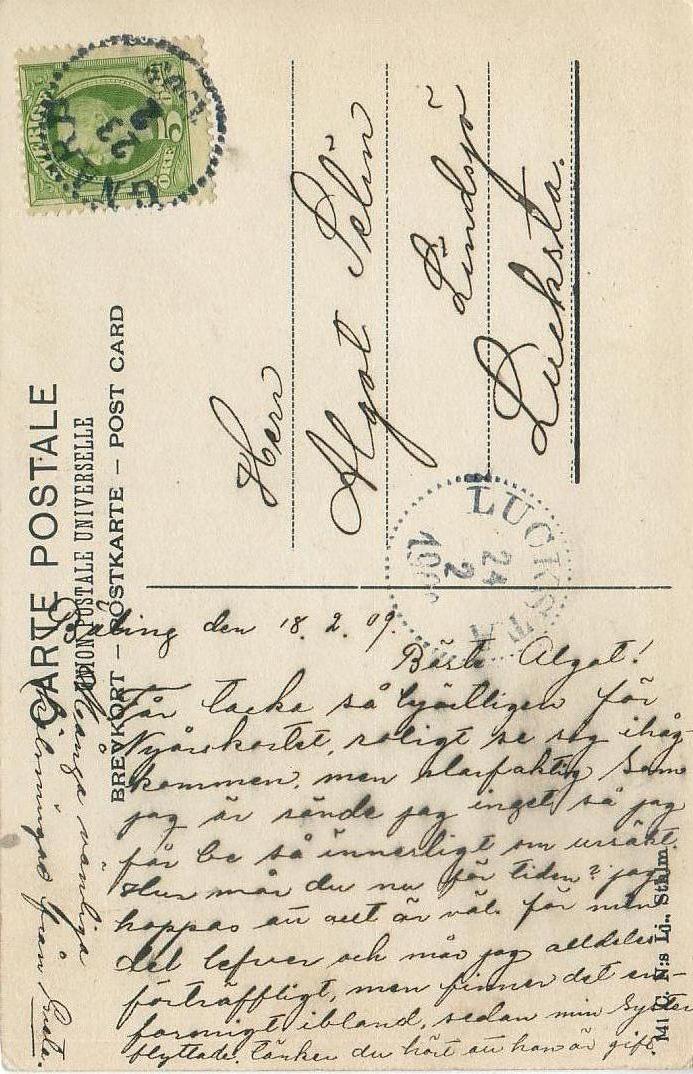 CARTE POSTALE
UNION POSTALE UNIVERSELLE
BREVKORT – POSTKARTE – POST CARD
SVERIGE
5
ÖRE
23
2
Herr
Algot Selin
Lindsjö
Lucksta.
LUCKSTA
24
2
den 18.2.09.
Bäste Algot!
Får tacka så hjärtligen för
Nyårskortet, roligt se sig ihåg-
kommen, men slarfaktig som
jag är sände jag inget, så jag
får be så innerligt om ursäkt.
Hur mår du nu för tiden? jag
hoppas att allt är väl. för min
del lefver och mår jag alldeles
förträffligt, men finner det en-
formigt ibland, sedan min Syster
flyttade. tänker du hört att hon är gift.
Många vänliga
Hälsningar från
Mll C. N:s Lj., Sthlm